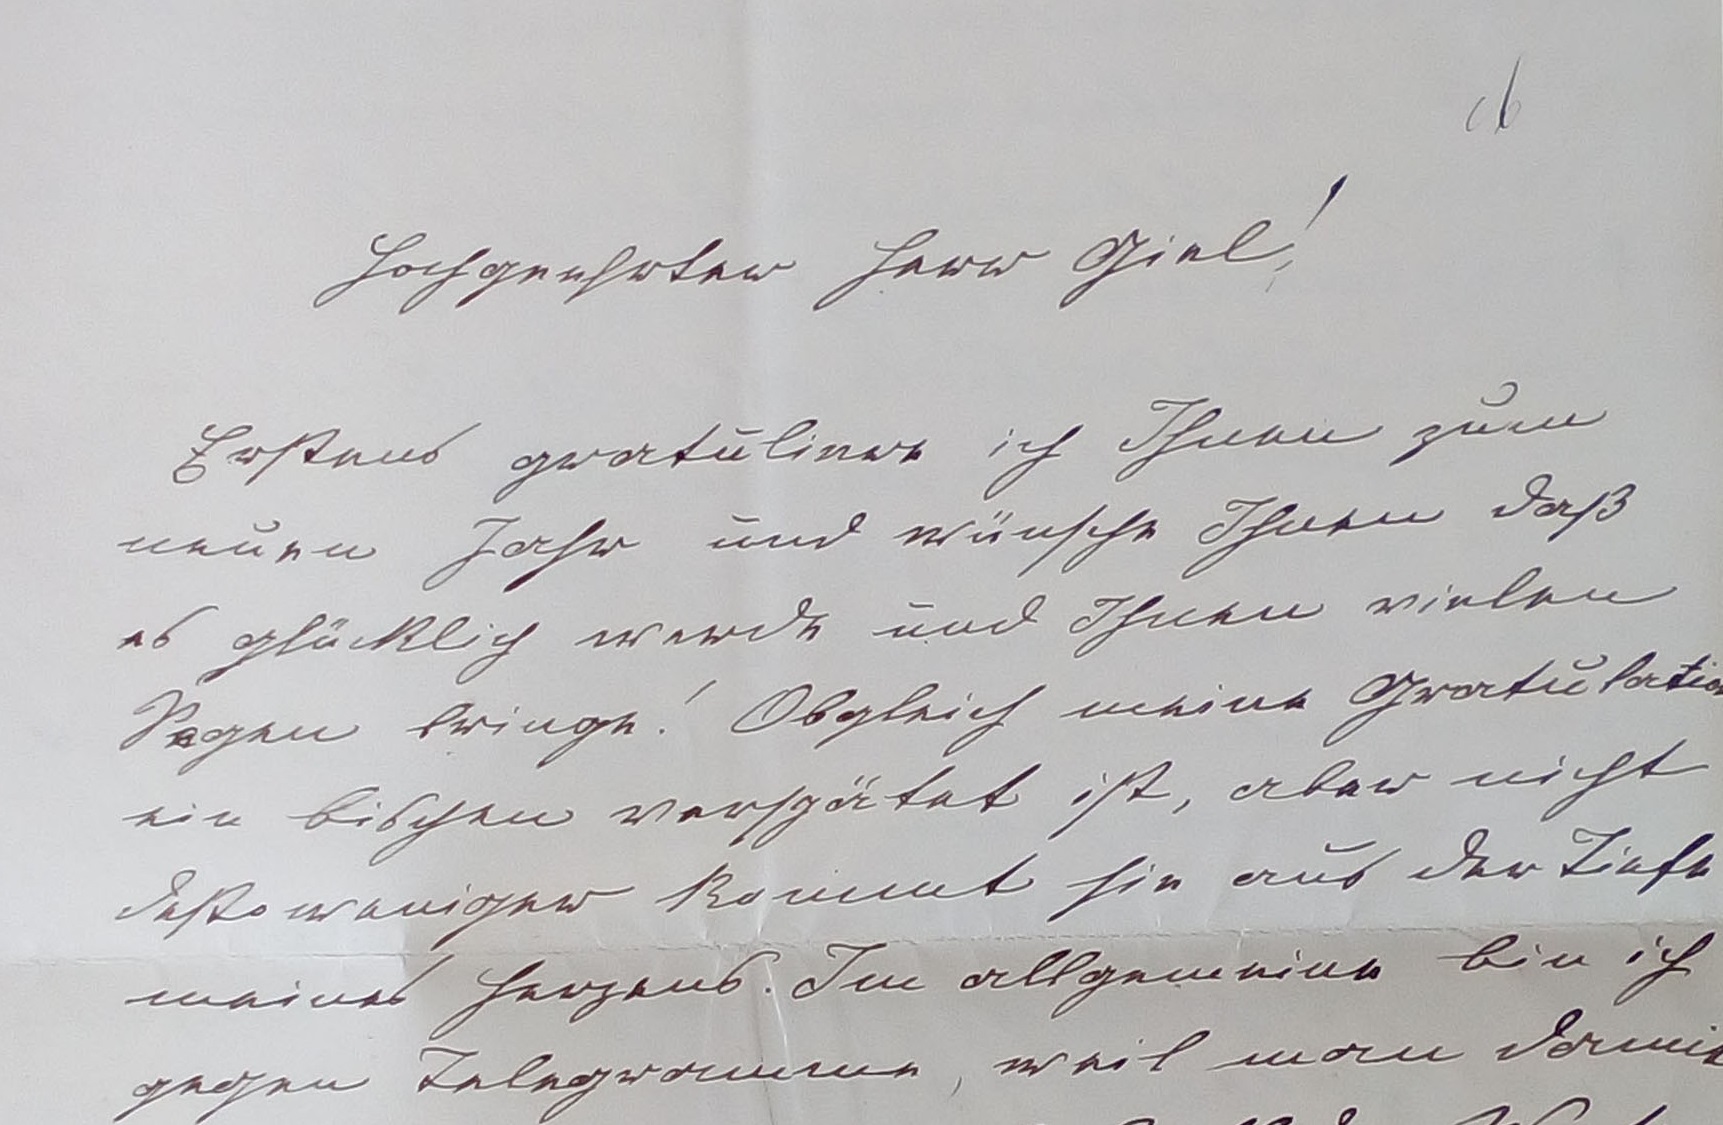 Hochgeehrter Herr Giel!
Erstens gratuliere ich Ihnen zum
neuen Jahr und wünsche Ihnen daß
es glücklich werde und Ihnen vielen
Segen bringe! Obgleich meine Gratulation
ein bischen verspätet ist, aber nicht
destoweniger kommt sie aus der Tiefe
meines Herzens. Im allgemeine bin ich
gegen Telegramme, weil man damit